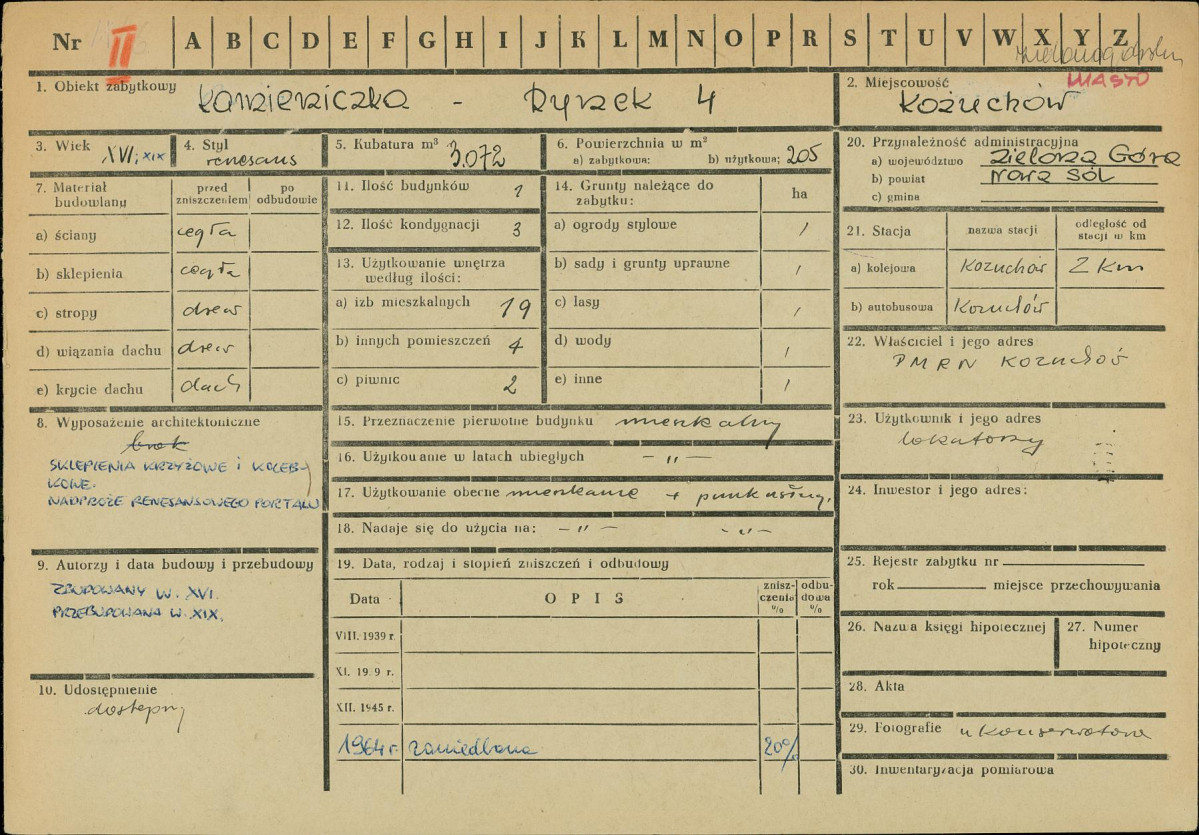 Nr II A B C D E F G H I J K L M N O P R S T U V W X Y Z
1. Obiekt zabytkowy Kamieniczka - Rynek 4
2. Miejscowość MIASTO
Kożuchów
3. Wiek XVI; XIX
4. Styl renesans
5. Kubatura m³ 3.072
6. Powierzchnia w m²
a) zabytkowa: b) użytkowa: 205
20. Przynależność administracyjna
a) województwo Zielona Góra
b) powiat Nowa Sól
c) gmina
7. Materiał budowlany
przed zniszczeniem
po odbudowie
a) ściany cegła
b) sklepienia cegła
c) stropy drew
d) wiązania dachu drew
e) krycie dachu dach
8. Wyposażenie architektoniczne
brak
SKLEPIENIA KRZYŻOWE I KOLEB-
KOWE.
NADPROŻE RENESANSOWEGO PORTALU
9. Autorzy i data budowy i przebudowy
ZBUDOWANY W. XVI.
PRZEBUDOWANA W. XIX.
10. Udostępnienie
dostępny
11. Ilość budynków 1
12. Ilość kondygnacji 3
13. Użytkowanie wnętrza
według ilości:
a) izb mieszkalnych 19
b) innych pomieszczeń 4
c) piwnic 2
14. Grunty należące do
zabytku:
ha
a) ogrody stylowe /
b) sady i grunty uprawne /
c) lasy /
d) wody /
e) inne /
15. Przeznaczenie pierwotne budynku mieszkalny
16. Użytkowanie w latach ubiegłych - " -
17. Użytkowanie obecne mieszkanie + punk usług.
18. Nadaje się do użycia na: - " - - " -
19. Data, rodzaj i stopień zniszczeń i odbudowy
Data OPIS znisz-czenie % odbu-dowa %
VIII. 1939 r.
XI. 19 9 r.
XII. 1945 r.
1964 r. zaniedbana 20%
21. Stacja
nazwa stacji
odległość od stacji w km
a) kolejowa Kożuchów 2 km
b) autobusowa Kożuchów
22. Właściciel i jego adres
PMRN Kożuchów
23. Użytkownik i jego adres
lokatorzy
24. Inwestor i jego adres:
25. Rejestr zabytku nr
rok miejsce przechowywania
26. Nazwa księgi hipotecznej
27. Numer
hipoteczny
28. Akta
29. Fotografie u Konserwatora
30. Inwentaryzacja pomiarowa